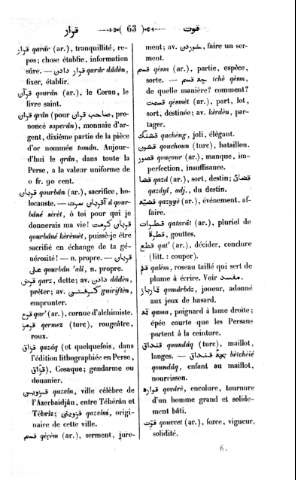 قرار —»( 63 )«— قوت
قرار qarâr (ar.), tranquillité, re-
pos; chose établie, information
sûre. — قرار دادن qarâr dâdèn,
fixer, établir.
قرآن qourân (ar.), le Coran, le
livre saint.
قران qrân (pour صاحب قران, pro-
noncé asperân), monnaie d'ar-
gent, dixième partie de la pièce
d'or nommée tomân. Aujour-
d'hui le qrân, dans toute la
Perse, a la valeur uniforme de
0 fr. 90 cent.
قربان qourbân (ar.), sacrifice, ho-
locauste. —
qourbânè kèrèmèt, puissé-je être
sacrifié en échange de ta gé-
nérosité! — n. propre. — قربان
علی qourbân 'alî, n. propre.
قرض qarz, dette; av. دادن dâdèn,
prêter; av. گرفتن guirìftèn,
emprunter.
قرع qar' (ar.), cornue d'alchimiste.
قرمز qermez (turc), rougeâtre,
roux.
قزاق qazâq (et quelquefois, dans
l'édition lithographiée en Perse,
قزاق), Cosaque; gendarme ou
douanier.
قزوین qazvîn, ville célèbre de
l'Azerbaïdjân, entre Téhérân et
Tébrîz; قزوینی qazvinî, origi-
naire de cette ville.
قسم qèsèm (ar.), serment, jure-
ment; av. خوردن, faire un ser-
ment.
قسم qism (ar.), partie, espèce,
sorte. — چه قسم tchè qism,
de quelle manière? comment?
قسمت qismèt (ar.), part, lot,
sort, destinée; av. kèrdèn, par-
tager.
قشنگ qachèng, joli, élégant.
قشون qouchoun (turc), bataillon.
قصور qouçour (ar.), manque, im-
perfection, insuffisance.
قضا qazâ (ar.), sort, destin;
qazâyî, adj., du destin.
قضیه qaziyè (ar.), événement, af-
faire.
قطرات qatarât (ar.), pluriel de
قطره, gouttes.
قطع qat' (ar.), décider, conclure
(litt. : couper).
قلم qalèm, roseau taillé qui sert de
plume à écrire. Voir
قمارباز qoumârbâz, joueur, adonné
aux jeux de hasard.
قمه qama, poignard à lame droite;
épée courte que les Persans
portent à la ceinture.
قنداق qoundâq (turc), maillot,
langes. —
qoundâq, enfant au maillot,
nourrisson.
قواره qavârè, encolure, tournure
d'un homme grand et solide-
ment bâti.
قوت qouvvet (ar.), force, vigueur,
solidité.
6.